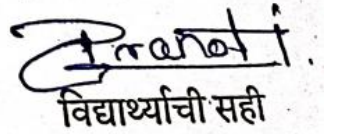 Pranoti.
विद्यार्थ्याची सही